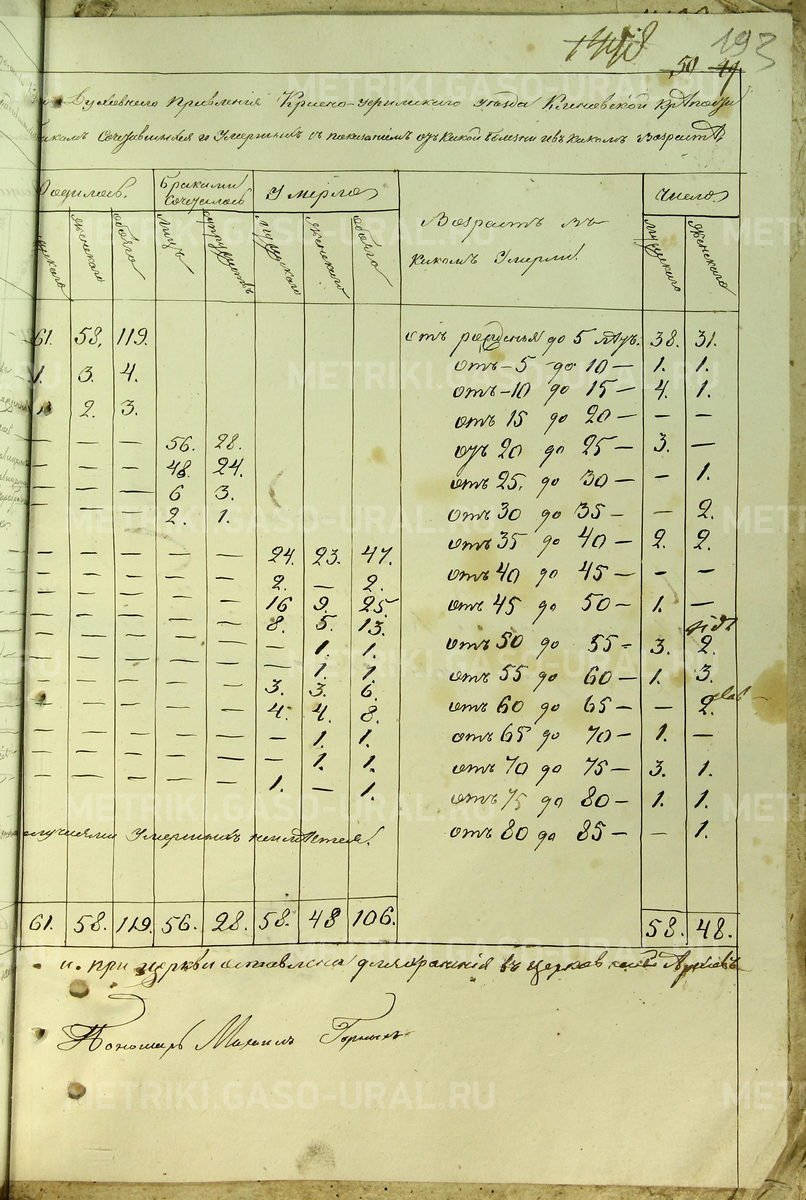 193
50
Духовнаго Правленія Красно-уфимскаго уѣзда Кленовской
Сочетавшихся и Умершихъ съ показаніемъ отъ какой болѣзни и въ какомъ Возрастѣ
Родилось. Браками Сочеталось Умерло Возрастъ въ какомъ Умерли. Число
Женскаго обоего Лицъ Супружествъ мужскаго Женскаго обоего мужскаго Женскаго
61. 58. 119. отъ рожденья до 5 лѣтъ. 38. 31.
1. 3. 4. отъ - 5 - до 10 — 1. 1.
отъ - 10 до 15 — 4. 1.
2. 3. отъ 15 до 20 — — —
— — — 56. 28. отъ 20 до 25 — 3. —
— — — 48. 24. отъ 25. до 30 — — 1.
— — — 6 3.
— — — 2. 1. отъ 30 до 35 — — 2.
— — — — — 24. 23. 47. отъ 35 до 40 — 2. 2.
— — — — — 2. — 2. отъ 40 до 45 — — —
— — — — — 16 9. 25. отъ 45 до 50 — 1. —
— — — — — 8. 5. 13.
— — — — — — 1. 1. отъ 50 до 55 - 3. 2.
— — — — — — 1. 1. отъ 55 до 60 — 1. 3.
— — — — — 3. 3. 6.
— — — — — 4. 4. 8. отъ 60 до 65 — — 2.
— — — — — — 1. 1. отъ 65 до 70 — 1. —
— — — — — — 1. 1. отъ 70 до 75 — 3. 1.
— — — — — 1. — 1. отъ 75 до 80 — 1. 1.
случаями Умершихъ неимѣется. отъ 80 до 85 — — 1.
61. 58. 119. 56. 28. 58. 48 106. 58. 48.
и. при церкви оставлена для храненія въ церковномъ Архивѣ
Пономарь Михаилъ
METRIKI.GASO-URAL.RU